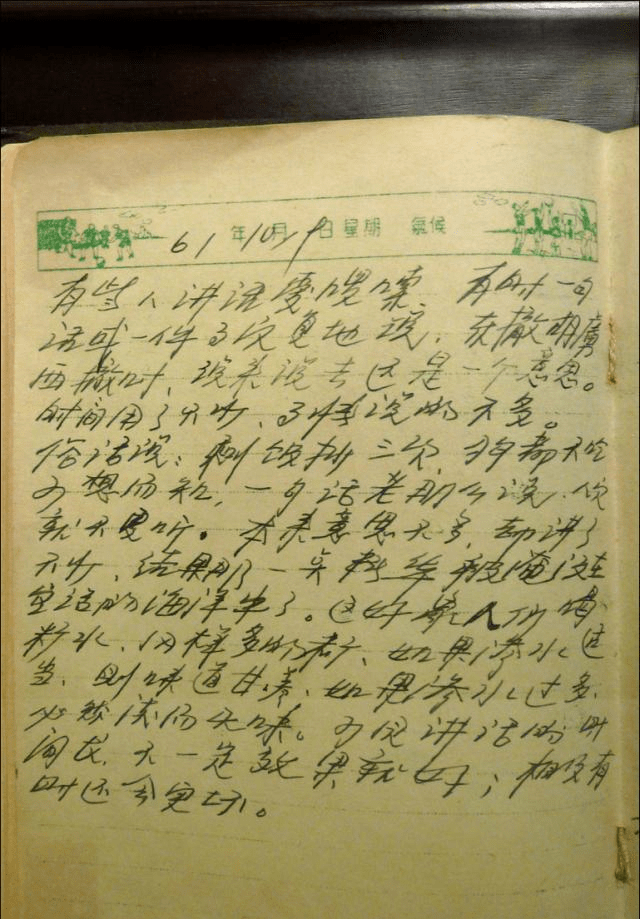 61年10月9日星期 氣候
有些人讲话爱啰嗦、有时一句
话或一件事反复地说，东撤胡扇
西撤时、说来说去还是一个意思。
时间用了不少、事情说的不多。
俗话说：剩饭拌三次，狗都不吃
可想而知，一句话老那么说，人
就不要听。本来意思不多，却讲了
不少、结果那一点被淹没在
空话的海洋里了。这好象人们喝
糖水、同样多的糖、如果渗水适
当、则味道甘美、如果渗水过多、
必然淡而无味。可见讲话的时
间长、不一定效果就好；相反有
时还会更坏。